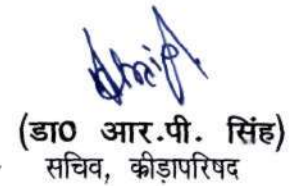 (डा0 आर.पी. सिंह)
सचिव, क्रीड़ापरिषद